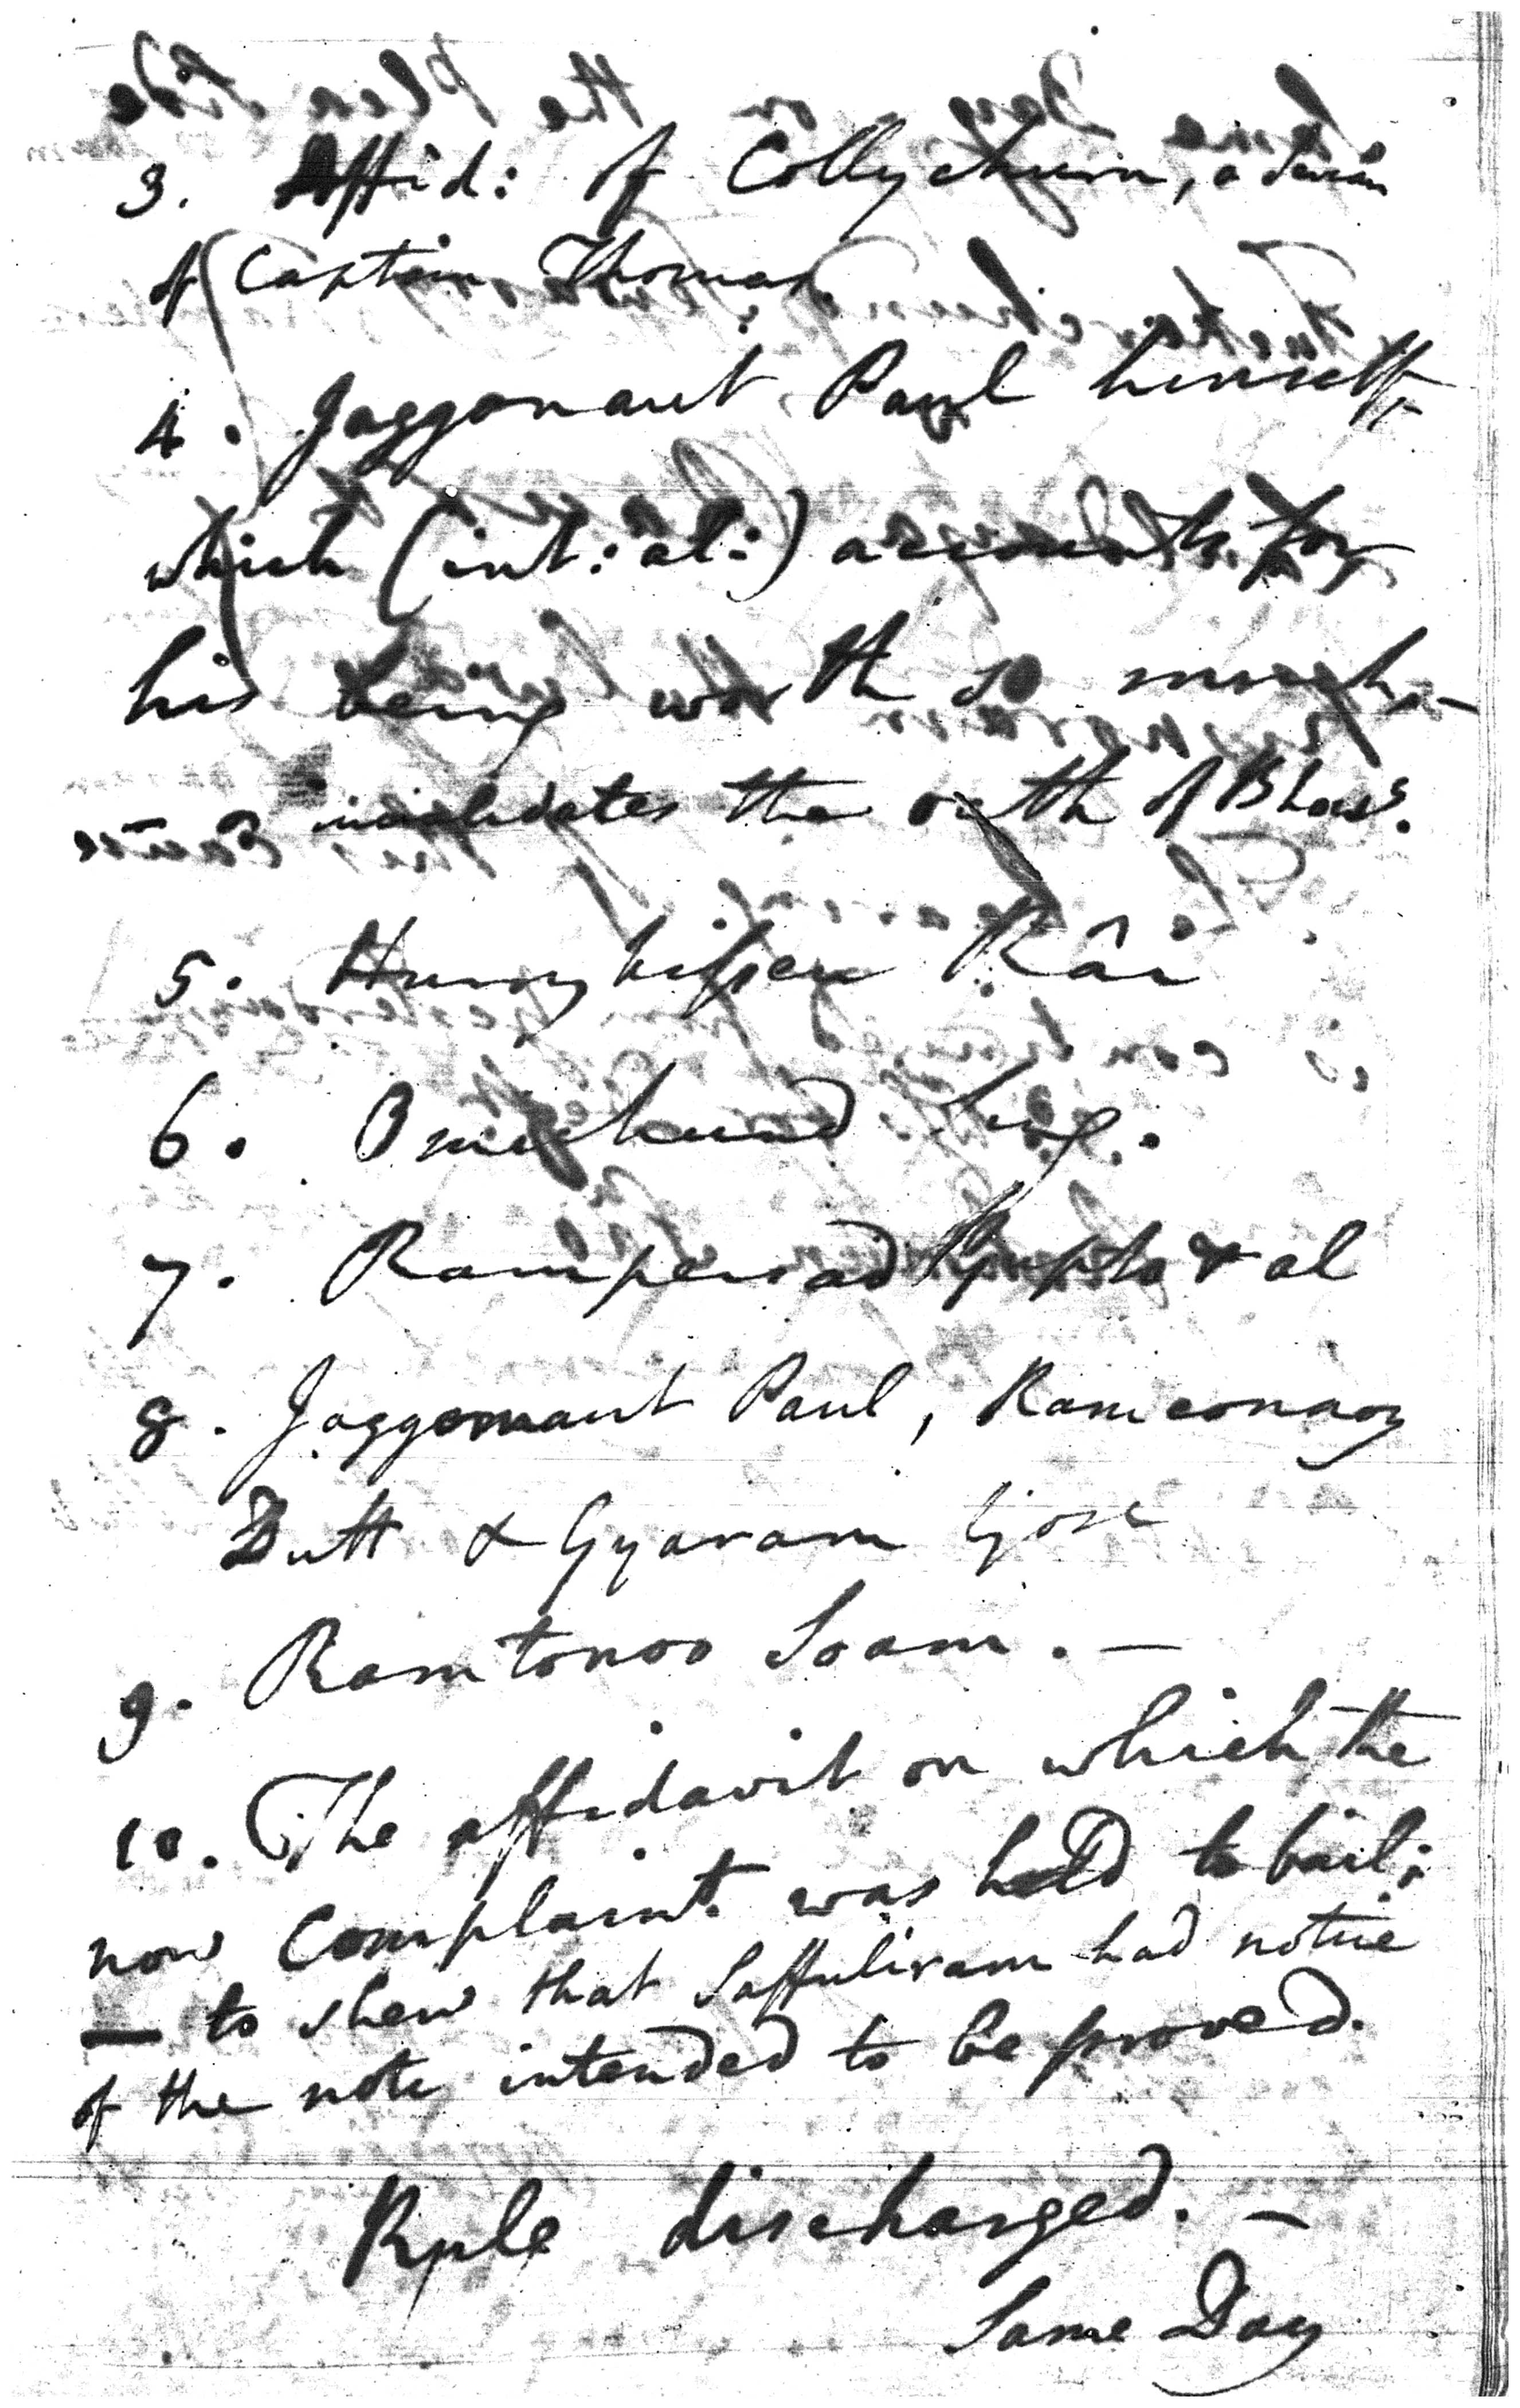 3. Affid: of Collychurn, a
of Captain Thomas
4. Jaggonaut Paul himself,
which (int: al:) accounts for
his being worth so much, —
— & invalidates the oath of
5. Hurrykissen Râi
6. Omichund
7. Rampersad Gupto & al
8. Jaggernaut Paul, Ramconnoy
Dutt & Gyaram Gose
9. Ramtonoo Soam. —
10. The affidavit on which the
now Complaint. was held to bail;
— to shew that Saffuliram had notice
of the note intended to be proved.
Rule discharged. —
Same Day